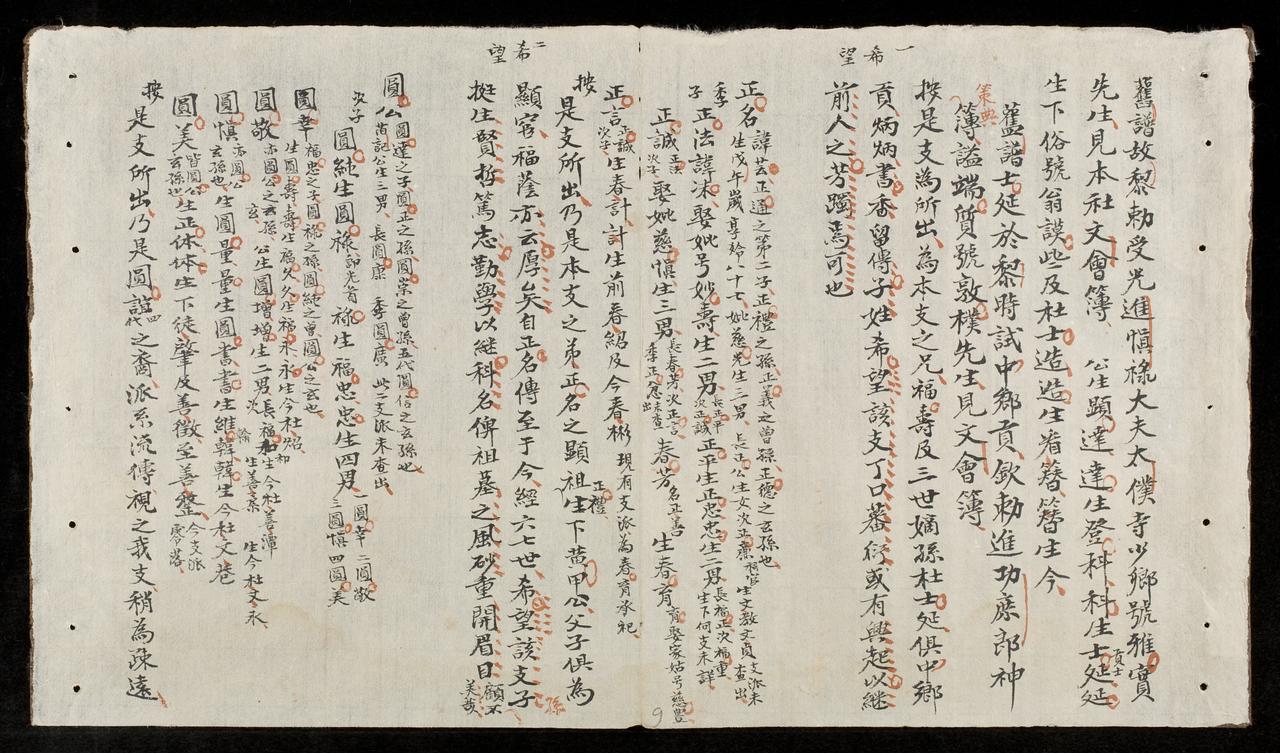 一希望
舊譜故黎勅受光進慎祿大夫太僕寺少鄉號雅實
先生見本社文會簿 公生顯達達生登科科生士廷廷貢士
生下俗號翁謨些及杜士造造生着簪簪生今
舊譜士廷於黎時試中鄉貢歆勅進功庶郎神
策典簿謚端質號敦樸先生見文會簿
按是支為所出為本支之兄福壽及三世嫡孫杜士廷俱中鄉
貢炳炳書香留傳子姓希望該支丁口蕃衍或有興起以継
前人之芳躅焉可也
正名 諱芸正通之第二子正禮之孫正義之曾孫正德之玄孫也
生戊午歲享玲八十七妣慈光生三男長正公生女次正廉祠官生文教文貞支派未查出
季子正法諱洡娶妣号妙壽生二男長正平次正誠正平生正忠忠生二男長福正次福重生下何支未詳
正誠正法次子娶妣慈慎生三男長春芳次正言季正念未查出春芳名正善生春育育娶家姑号慈豊
正言正誠次子生春計計生前春紹及今春彬 現有支派為春育承祀
二希望
按是支所出乃是本支之弟正名之顯祖正禮生下黄甲公父子俱為
顯宦福蔭亦云厚矣自正名傳至于今經六七世希望該支子孫
挺生賢哲篤志勤學以継科名俾祖墓之風砂重開眉目顧不美哉
圓公 圓達之子圓正之孫圓崇之曾孫五代圓信之玄孫也
黄記公生三男長圓康 季圓廣 此二支派未查出
次子圓純生圓祿即先首祿生福忠忠生四男一圓幸二圓敬三圓慎四圓美
圓幸 福忠之子圓祿之孫圓純之曾圓公之玄也
生圓壽壽生福久久生福永永生今杜炤
圓敬 亦圓公之玄孫 公生圓增增生二男長福和和生今杜善潭
次 生善 生今杜文永
圓慎 亦圓公玄孫也生圓量量生圓書書生維韓韓生今杜文巷
圓美 皆圓公玄孫也生正体体生下徒肇及善徵至善鏧今支派零落
按是支所出乃是圓誼四代之裔派系流傳視之我支稍為疎遠
9